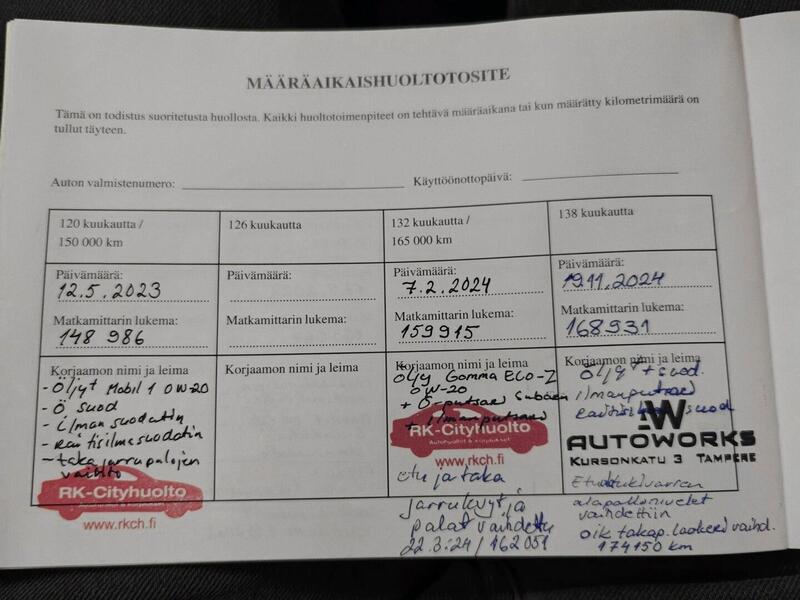 MÄÄRÄAIKAISHUOLTOTOSITE
Tämä on todistus suoritetusta huollosta. Kaikki huoltotoimenpiteet on tehtävä määräaikana tai kun määrätty kilometrimäärä on
tullut täyteen.
Auton valmistenumero:
Käyttöönottopäivä:
120 kuukautta /
150 000 km
Päivämäärä:
12.5.2023
Matkamittarin lukema:
148 986
Korjaamon nimi ja leima
- Öljyt Mobil 1 0W-20
- Ö suod
- ilman suodatin
- raitisilmasuodatin
- taka jarrupalojen
vaihto
RK-Cityhuolto
www.rkch.fi
126 kuukautta
Päivämäärä:
Matkamittarin lukema:
Korjaamon nimi ja leima
132 kuukautta /
165 000 km
Päivämäärä:
7.2.2024
Matkamittarin lukema:
159915
Korjaamon nimi ja leima
Öljy Gomma ECO-Z
0W-20
+ Ö-putsari Subaru
+ ilmanputsari
RK-Cityhuolto
Autohuollot & korjaukset
www.rkch.fi
etu ja taka
jarrulevyt ja
palat vaihdettu
22.3.24 / 162 051
138 kuukautta
Päivämäärä:
19.11.2024
Matkamittarin lukema:
168931
Korjaamon nimi ja leima
Öljyt + suod.
ilmanputsari
suod
AW
AUTOWORKS
KURSONKATU 3 TAMPERE
Etutukivarren
alapallonivelet
vaihdettiin
oik takap. laakeri vaihd.
174150 km